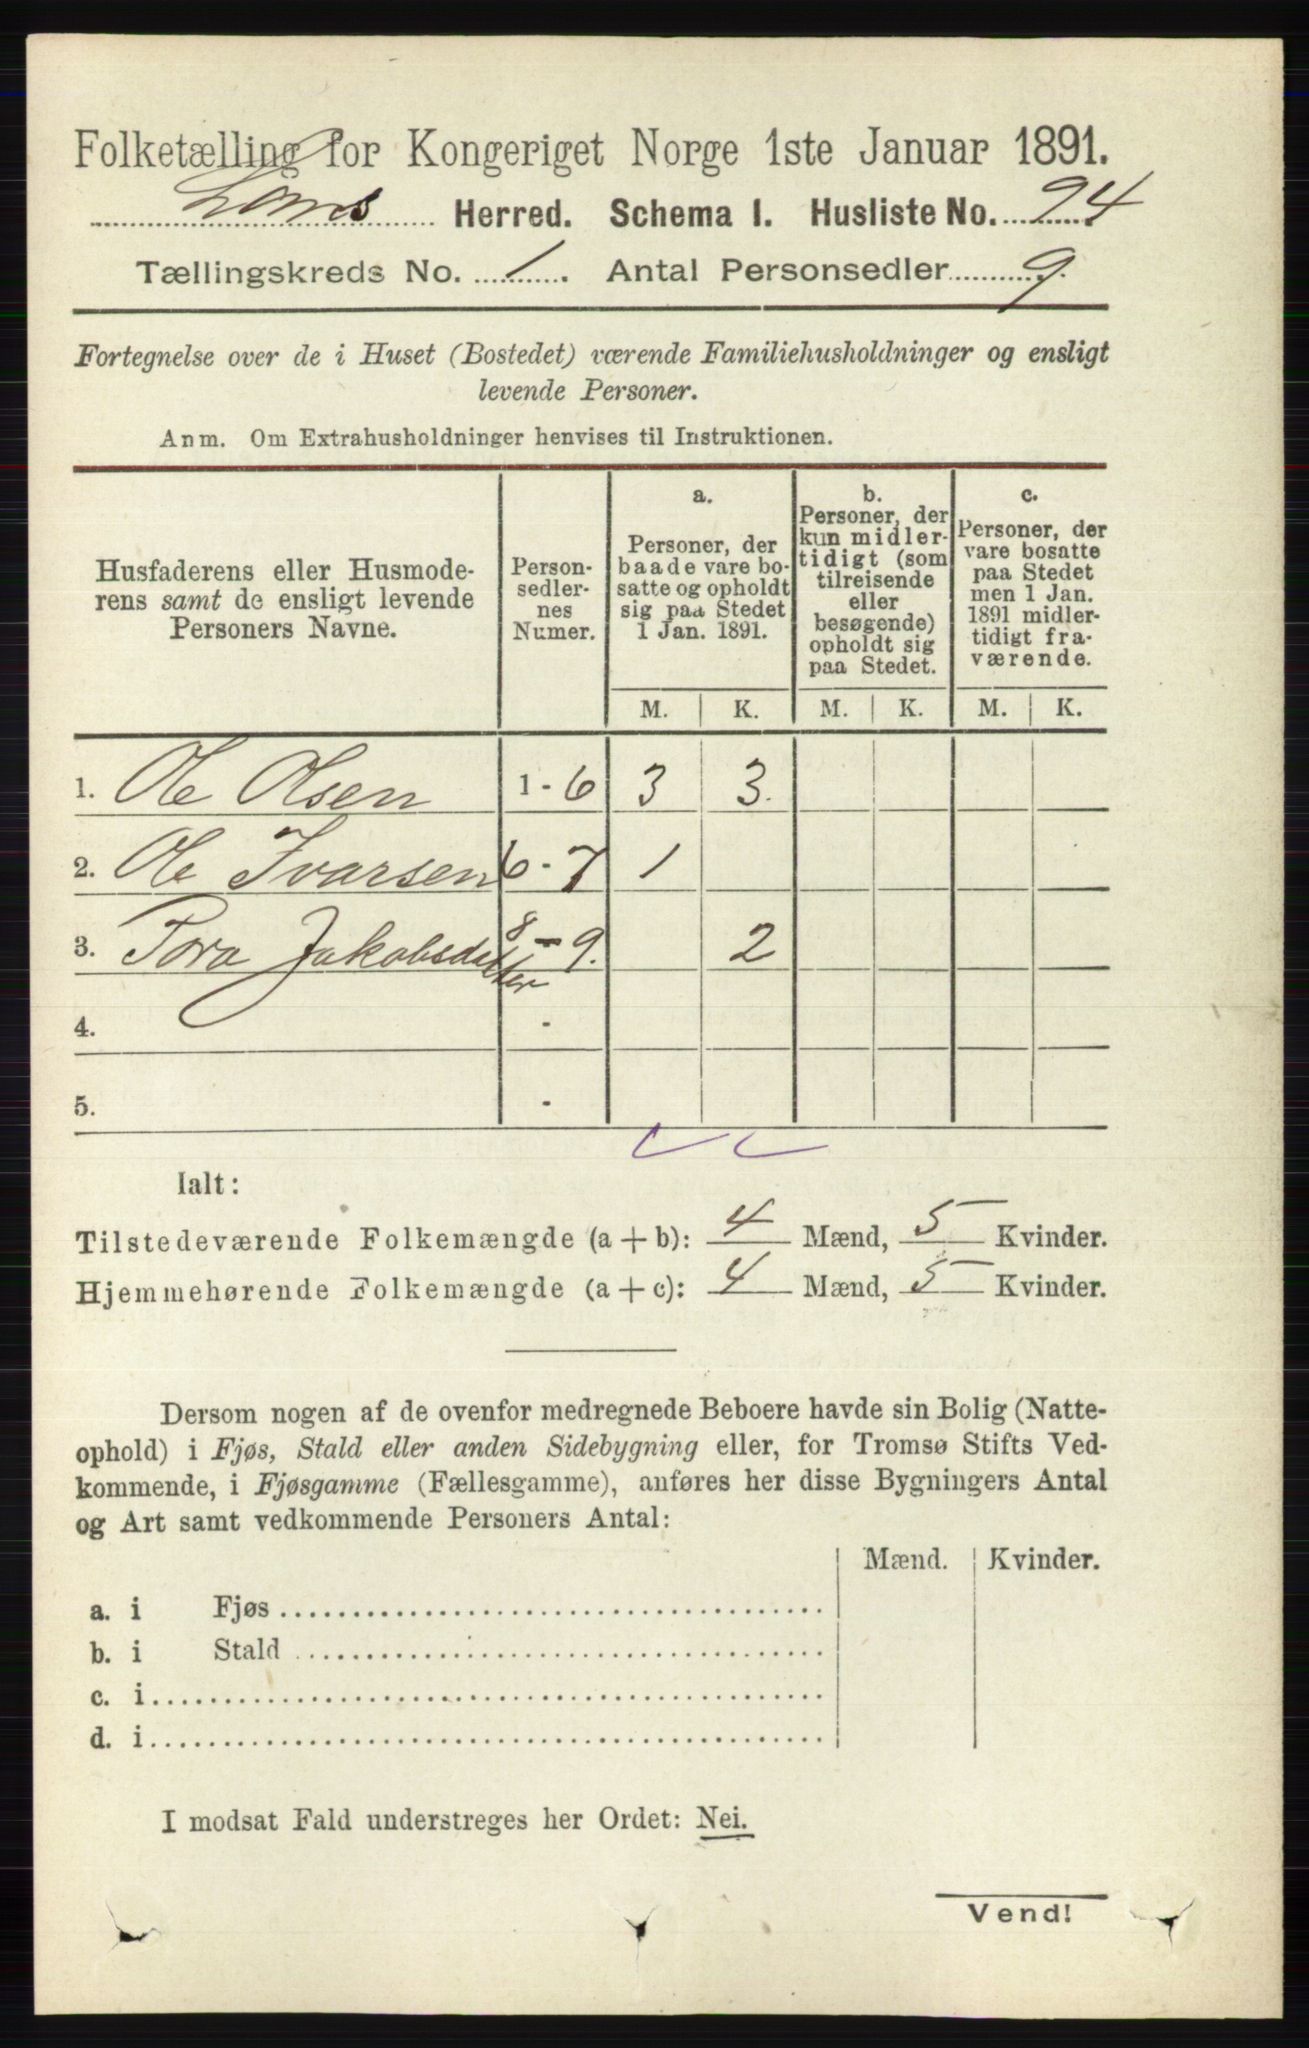 Folketælling for Kongeriget Norge 1ste Januar 1891.
Loms Herred. Schema I. Husliste No. 94
Tællingskreds No. 1. Antal Personsedler 9.
Fortegnelse over de i Huset (Bostedet) værende Familiehusholdninger og ensligt
levende Personer.
Anm. Om Extrahusholdninger henvises til Instruktionen.
Husfaderens eller Husmode-
rens samt de ensligt levende
Personers Navne.
Person-
sedler-
nes
Numer.
a.
Personer, der
baade vare bo-
satte og opholdt
sig paa Stedet
1 Jan. 1891.
b.
Personer, der
kun midler-
tidigt (som
tilreisende
eller
besøgende)
opholdt sig
paa Stedet.
c.
Personer, der
vare bosatte
paa Stedet
men 1 Jan.
1891 midler-
tidigt fra-
værende.
M. K. M. K. M. K.
1. Ole Olsen 1 - 6 3 3.
2. Ole Ivarsen 6 - 7 1
3. Tora Jakobsdatter 8 - 9. 2
4. -
5. -
Ialt:
Tilstedeværende Folkemængde (a + b): 4 Mænd, 5 Kvinder.
Hjemmehørende Folkemængde (a + c): 4 Mænd, 5 Kvinder.
Dersom nogen af de ovenfor medregnede Beboere havde sin Bolig (Natte-
ophold) i Fjøs, Stald eller anden Sidebygning eller, for Tromsø Stifts Ved-
kommende, i Fjøsgamme (Fællesgamme), anføres her disse Bygningers Antal
og Art samt vedkommende Personers Antal:
Mænd. Kvinder.
a. i Fjøs
b. i Stald
c. i
d. i
I modsat Fald understreges her Ordet: Nei.
Vend!